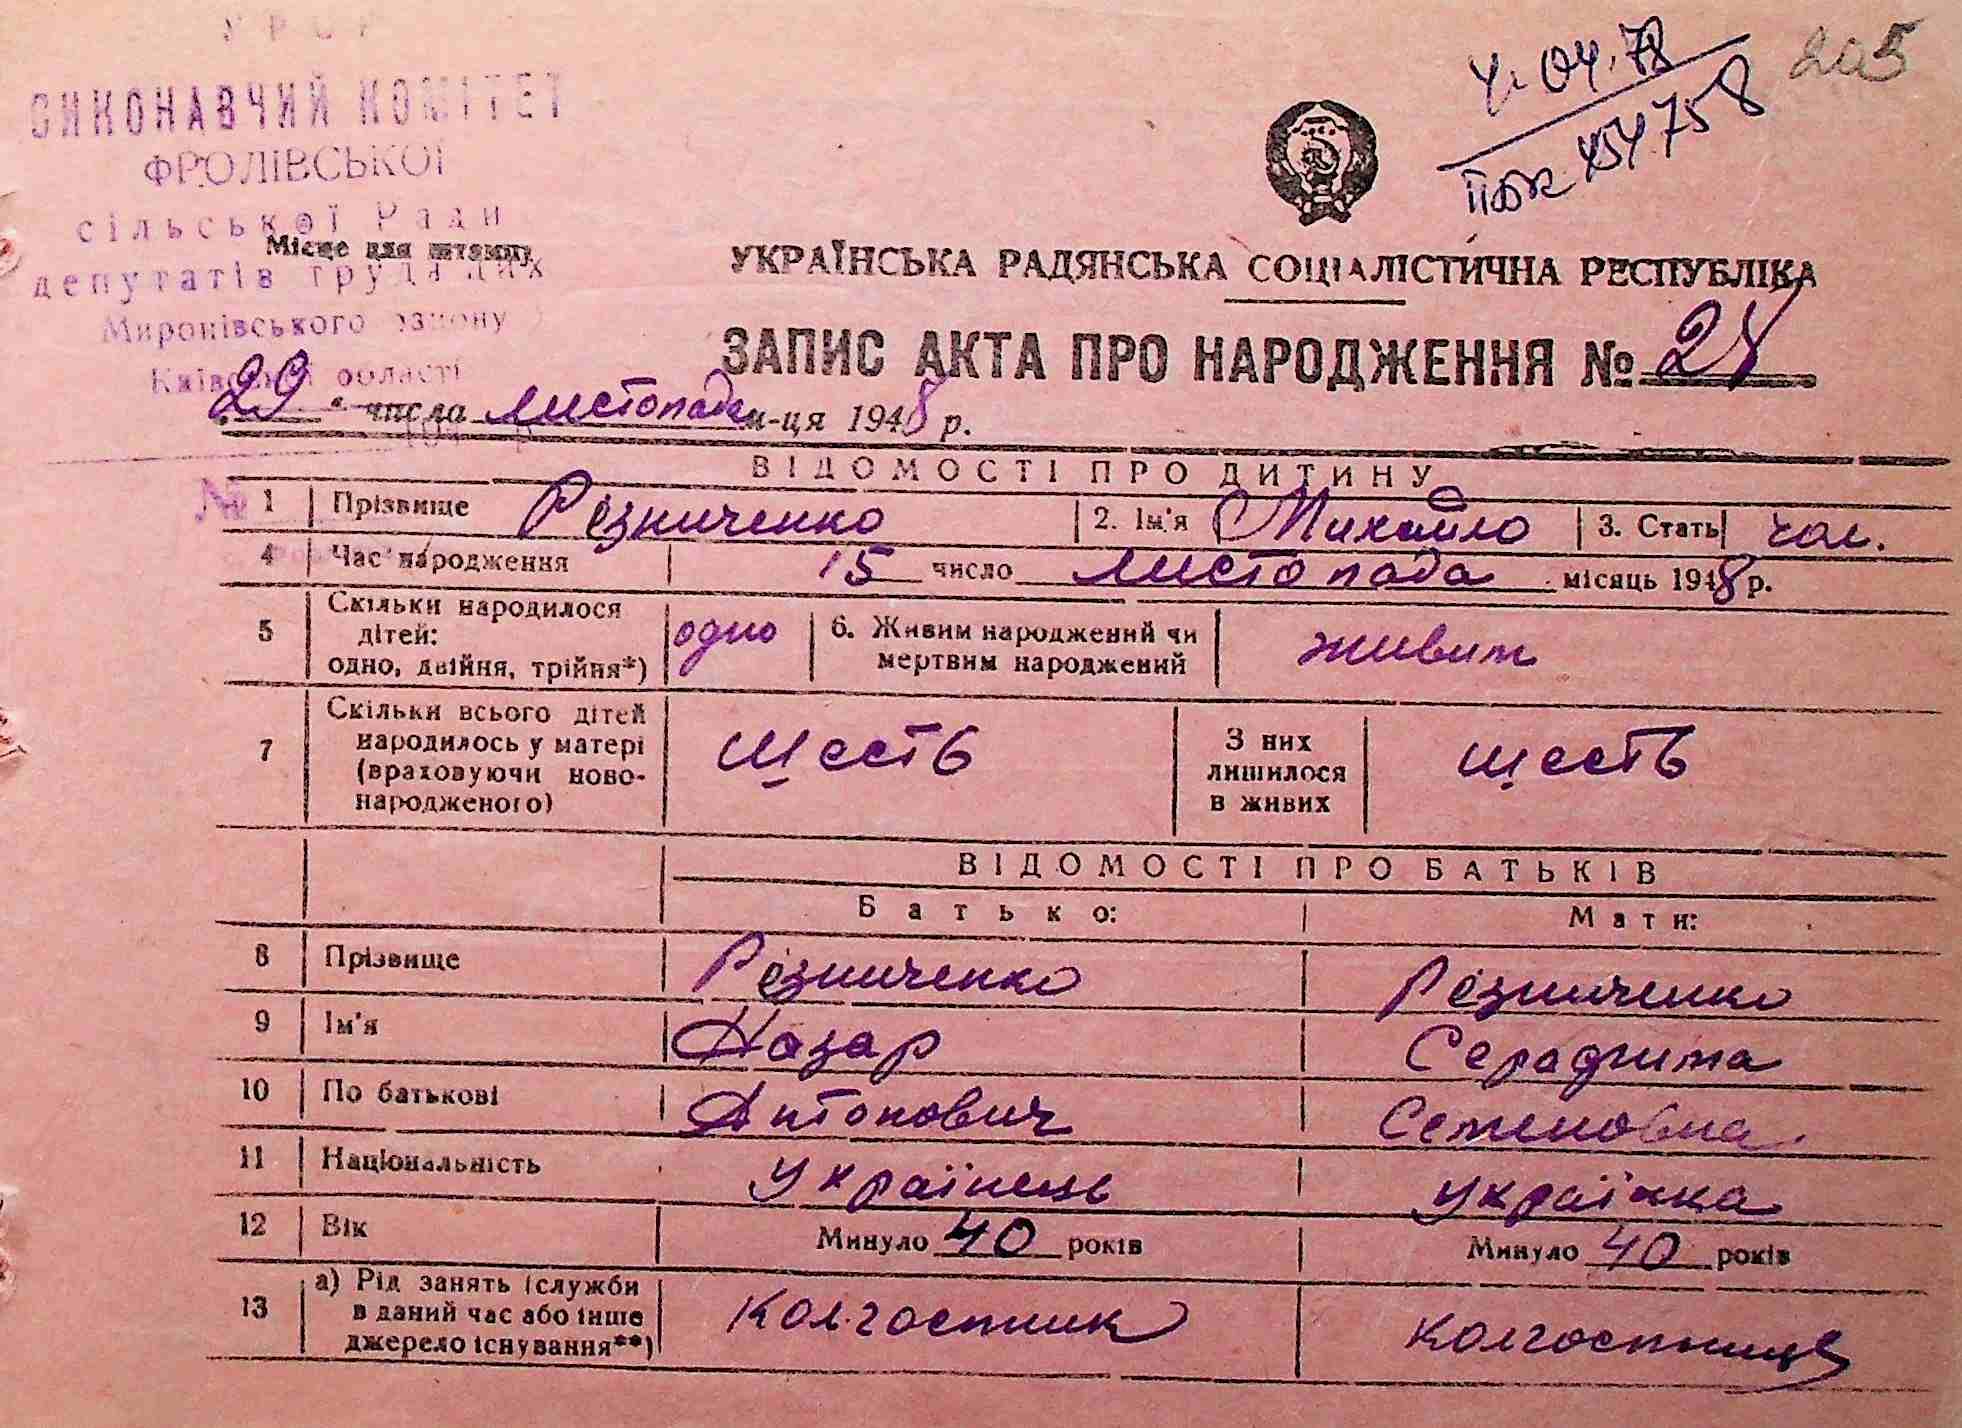 УРСР
ВИКОНАВЧИЙ КОМІТЕТ
ФРОЛІВСЬКОЇ
сільської Ради
Місце для штампу
депутатів трудящих
Миронівського району
Київської області
4.04.78
205
454758
УКРАЇНСЬКА РАДЯНСЬКА СОЦІАЛІСТИЧНА РЕСПУБЛІКА
ЗАПИС АКТА ПРО НАРОДЖЕННЯ № 28
29 числа листопада м-ця 1948 р.
ВІДОМОСТІ ПРО ДИТИНУ
№ 1 Прізвище Резниченко 2. Ім'я Михайло 3. Стать чол.
4 Час народження 15 число листопада місяць 1948 р.
5 Скільки народилося дітей: одно, двійня, трійня*) одно 6. Живим народжений чи мертвим народжений живим
7 Скільки всього дітей народилось у матері (враховуючи новонародженого) шесть З них лишилося в живих шесть
ВІДОМОСТІ ПРО БАТЬКІВ
Батько: Мати:
8 Прізвище Резниченко Резниченко
9 Ім'я Назар Серафима
10 По батькові Антонович Семеновна
11 Національність українець українка
12 Вік Минуло 40 років Минуло 40 років
13 а) Рід занять (служби в даний час або інше джерело існування**) Колгоспник колгоспниця